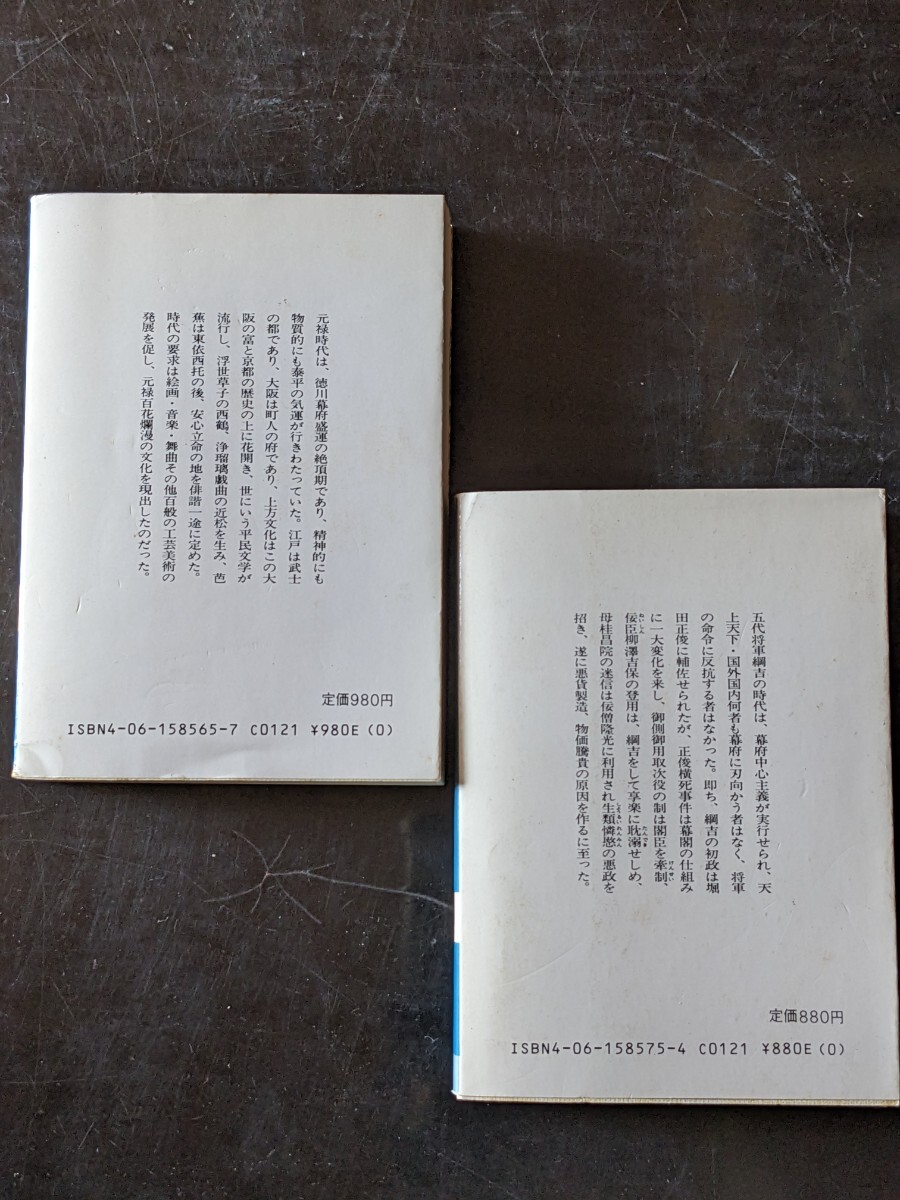 元禄時代は、徳川幕府盛運の絶頂期であり、精神的にも
物質的にも泰平の気運が行きわたっていた。江戸は武士
の都であり、大阪は町人の府であり、上方文化はこの大
阪の富と京都の歴史の上に花開き、世にいう平民文学が
流行し、浮世草子の西鶴、浄瑠璃戯曲の近松を生み、芭
蕉は東依西托の後、安心立命の地を俳諧一途に定めた。
時代の要求は絵画・音楽・舞曲その他百般の工芸美術の
発展を促し、元禄百花爛漫の文化を現出したのだった。
定価980円
ISBN4-06-158565-7 C0121 ¥980E(0)
五代将軍綱吉の時代は、幕府中心主義が実行せられ、天
上天下・国外国内何者も幕府に刃向かう者はなく、将軍
の命令に反抗する者はなかった。即ち、綱吉の初政は堀
田正俊に輔佐せられたが、正俊横死事件は幕閣の仕組み
に一大変化を来し、御側御用取次役の制は閣臣を牽制、
佞臣柳澤吉保の登用は、綱吉をして享楽に耽溺せしめ、
母桂昌院の迷信は佞僧隆光に利用され生類憐愍の悪政を
招き、遂に悪貨製造、物価騰貴の原因を作るに至った。
けんせい
ねいしん
たんでき
しょうるいれんみん
定価880円
ISBN4-06-158575-4 C0121 ¥880E(0)